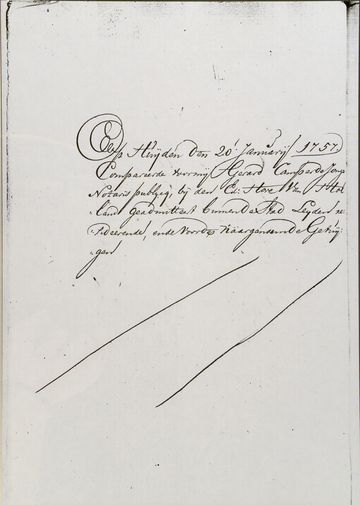 Op Huijden den 20 Januarij 1757.
Compareerde voor mij Gerard Camper de Jonge
Notaris publicq, bij den Ed: Hove Van Hol
land geadmitteert binnen de Stad Leyden re
sideerende, ende Voor de Naargenoemde Getuij
gen